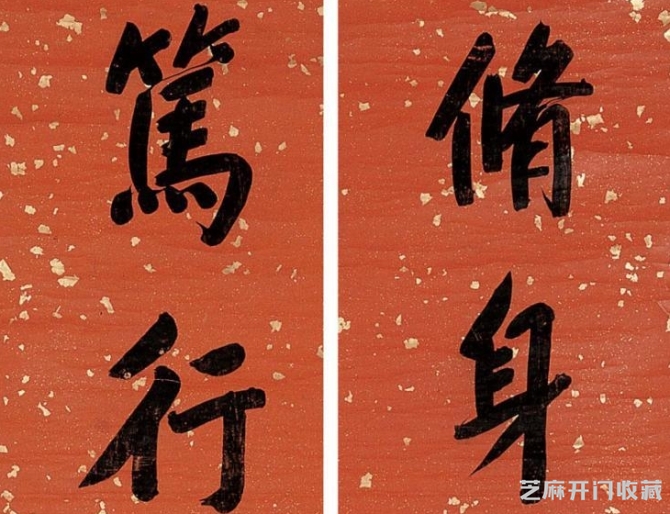 脩身
篤行
芝麻开门收藏